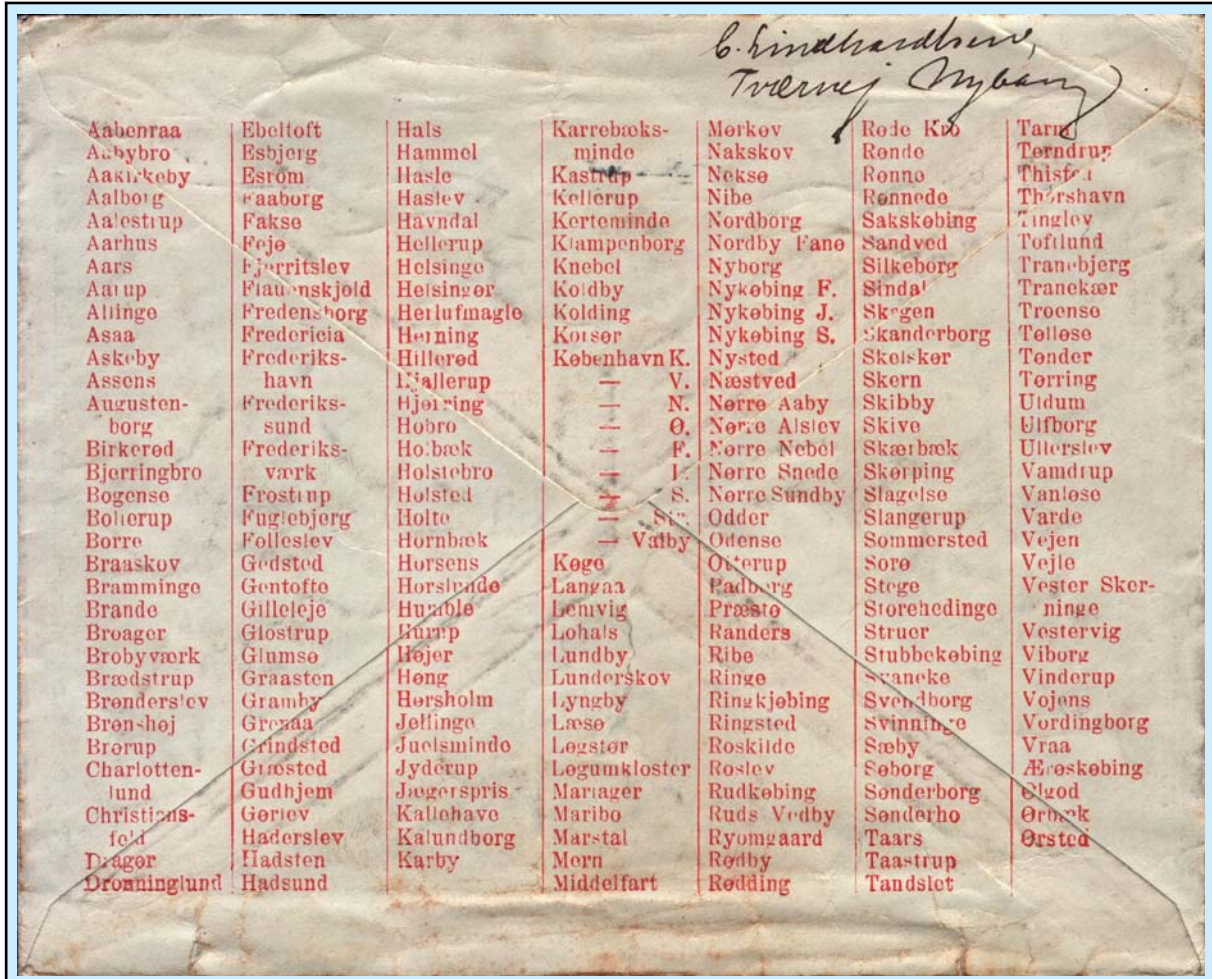 C. Lindhardtsen,
Tværvej Nyborg
Aabenraa
Aabybro
Aakirkeby
Aalborg
Aalestrup
Aarhus
Aars
Aarup
Allinge
Asaa
Askeby
Assens
Augusten-
borg
Birkerød
Bjerringbro
Bogense
Bolderup
Borre
Braaskov
Bramminge
Brande
Broager
Brobyværk
Brædstrup
Brønderslev
Brønshøj
Brørup
Charlotten-
lund
Christians-
feld
Dragør
Dronninglund
Ebeltoft
Esbjerg
Esrom
Faaborg
Fakse
Fejø
Fjerritslev
Flauenskjold
Fredensborg
Fredericia
Frederiks-
havn
Frederiks-
sund
Frederiks-
værk
Frøstrup
Fuglebjerg
Følleslev
Gedsted
Gentofte
Gilleleje
Glostrup
Glumsø
Graasten
Gramby
Grenaa
Grindsted
Græsted
Gudhjem
Gørlev
Haderslev
Hadsten
Hadsund
Hals
Hammel
Hasle
Haslev
Havndal
Hellerup
Helsinge
Helsingør
Herlufmagle
Herning
Hillerød
Hjallerup
Hjørring
Hobro
Holbæk
Holstebro
Holsted
Holte
Hornbæk
Horsens
Horslunde
Humble
Hurup
Højer
Høng
Hørsholm
Jellinge
Juelsminde
Jyderup
Jægerspris
Kallehave
Kalundborg
Karby
Karrebæks-
minde
Kastrup
Kellerup
Kerteminde
Klampenborg
Knebel
Koldby
Kolding
Korsør
København K.
— V.
— N.
— Ø.
— F.
— L.
— S.
— Str.
— Valby
Køge
Langaa
Lemvig
Lohals
Lundby
Lunderskov
Lyngby
Læsø
Løgstør
Løgumkloster
Mariager
Maribo
Marstal
Mern
Middelfart
Mørkøv
Nakskov
Neksø
Nibe
Nordborg
Nordby Fanø
Nyborg
Nykøbing F.
Nykøbing J.
Nykøbing S.
Nysted
Næstved
Nørre Aaby
Nørre Alslev
Nørre Nebel
Nørre Snede
Nørre Sundby
Odder
Odense
Otterup
Padborg
Præstø
Randers
Ribe
Ringe
Ringkjøbing
Ringsted
Roskilde
Roslev
Rudkøbing
Ruds Vedby
Ryomgaard
Rødby
Rødding
Røde Kro
Rønde
Rønne
Rønnede
Sakskøbing
Sandved
Silkeborg
Sindal
Skagen
Skanderborg
Skelskør
Skern
Skibby
Skive
Skærbæk
Skørping
Slagelse
Slangerup
Sommersted
Sorø
Stege
Storehedinge
Struer
Stubbekøbing
Svaneke
Svendborg
Svinninge
Sæby
Søborg
Sønderborg
Sønderho
Taars
Taastrup
Tandslet
Tarm
Terndrup
Thisted
Thorshavn
Tinglev
Toftlund
Tranebjerg
Tranekær
Troense
Tølløse
Tønder
Tørring
Uldum
Ulfborg
Ullerslev
Vamdrup
Vanløse
Varde
Vejen
Vejle
Vester Sker-
ninge
Vestervig
Viborg
Vinderup
Vojens
Vordingborg
Vraa
Ærøskøbing
Ølgod
Ørbæk
Ørsted